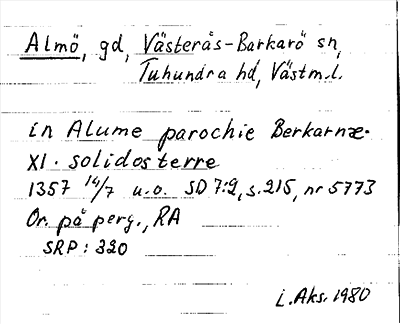 Almö, gd, Västerås-Barkarö sn,
Tuhundra hd, Västm.l.
in Alume parochie Berkarnæ.
XI. solidos terre
1357 14/7 u.o. SD 7:2, s.215, nr 5773
Or. på perg., RA
SRP: 320
L.Aks. 1980